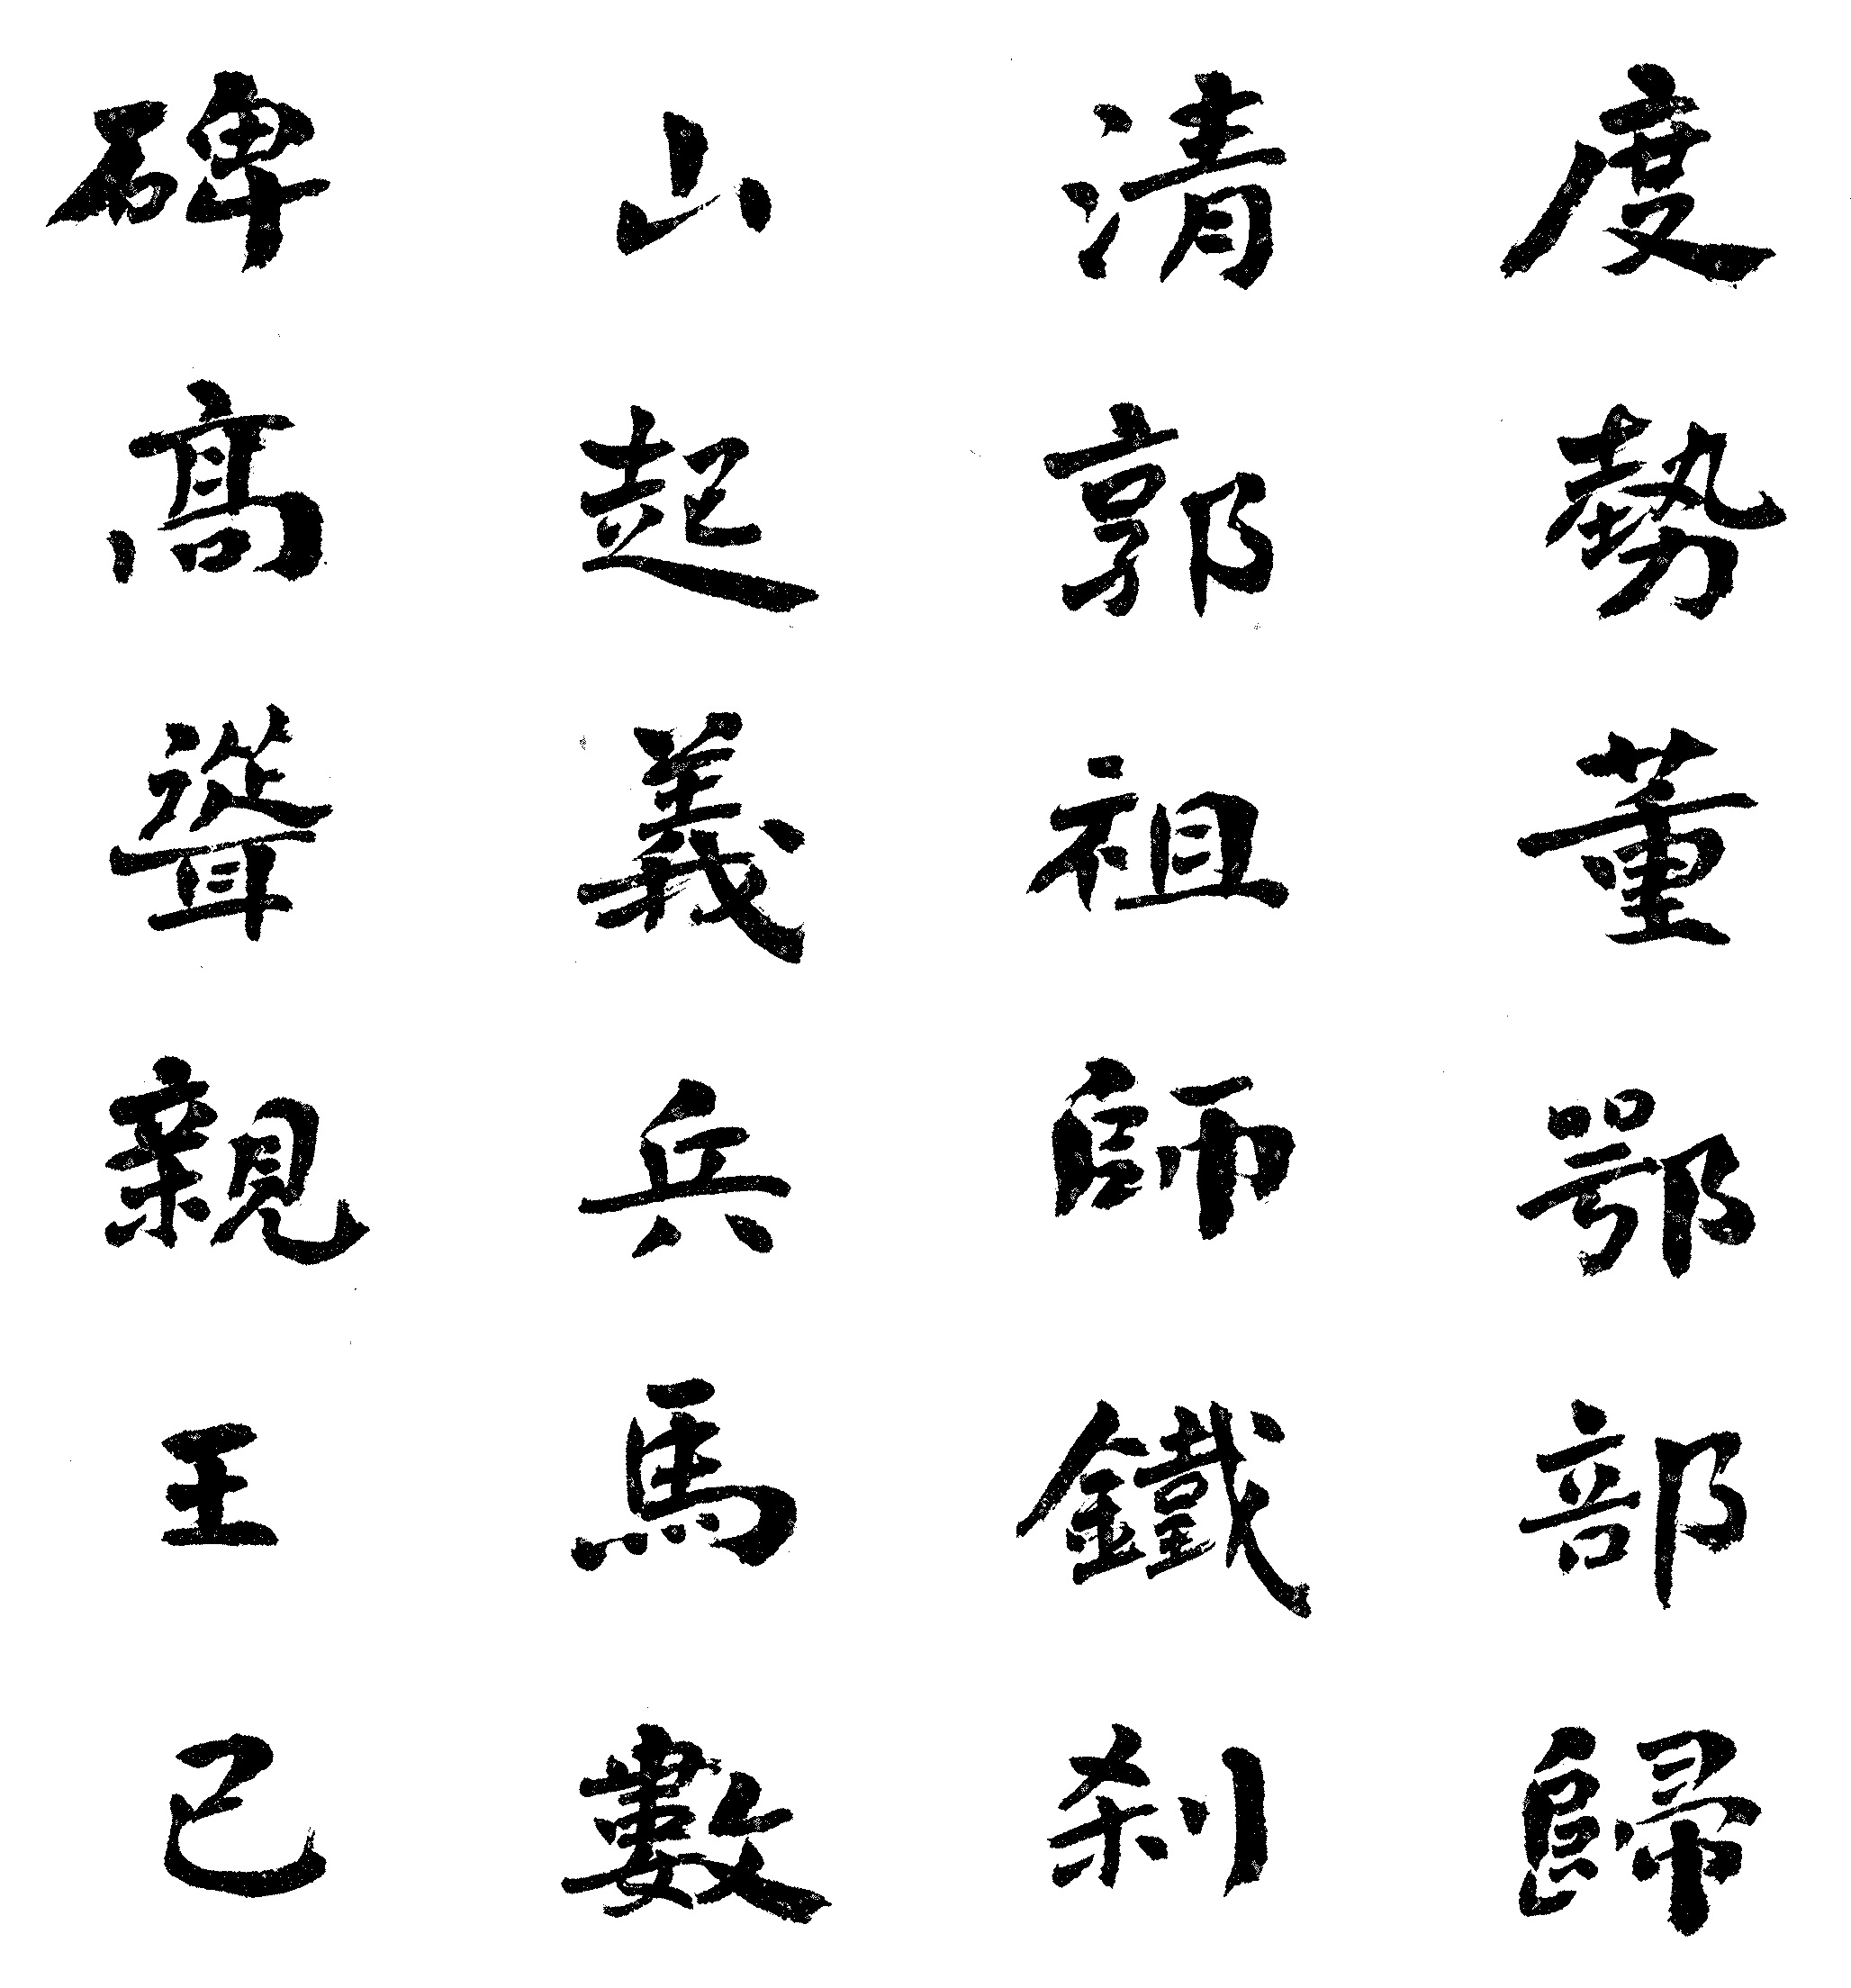 度勢董鄂部歸
清郭祖師鐵刹
山起義兵馬數
碑高聳親王已